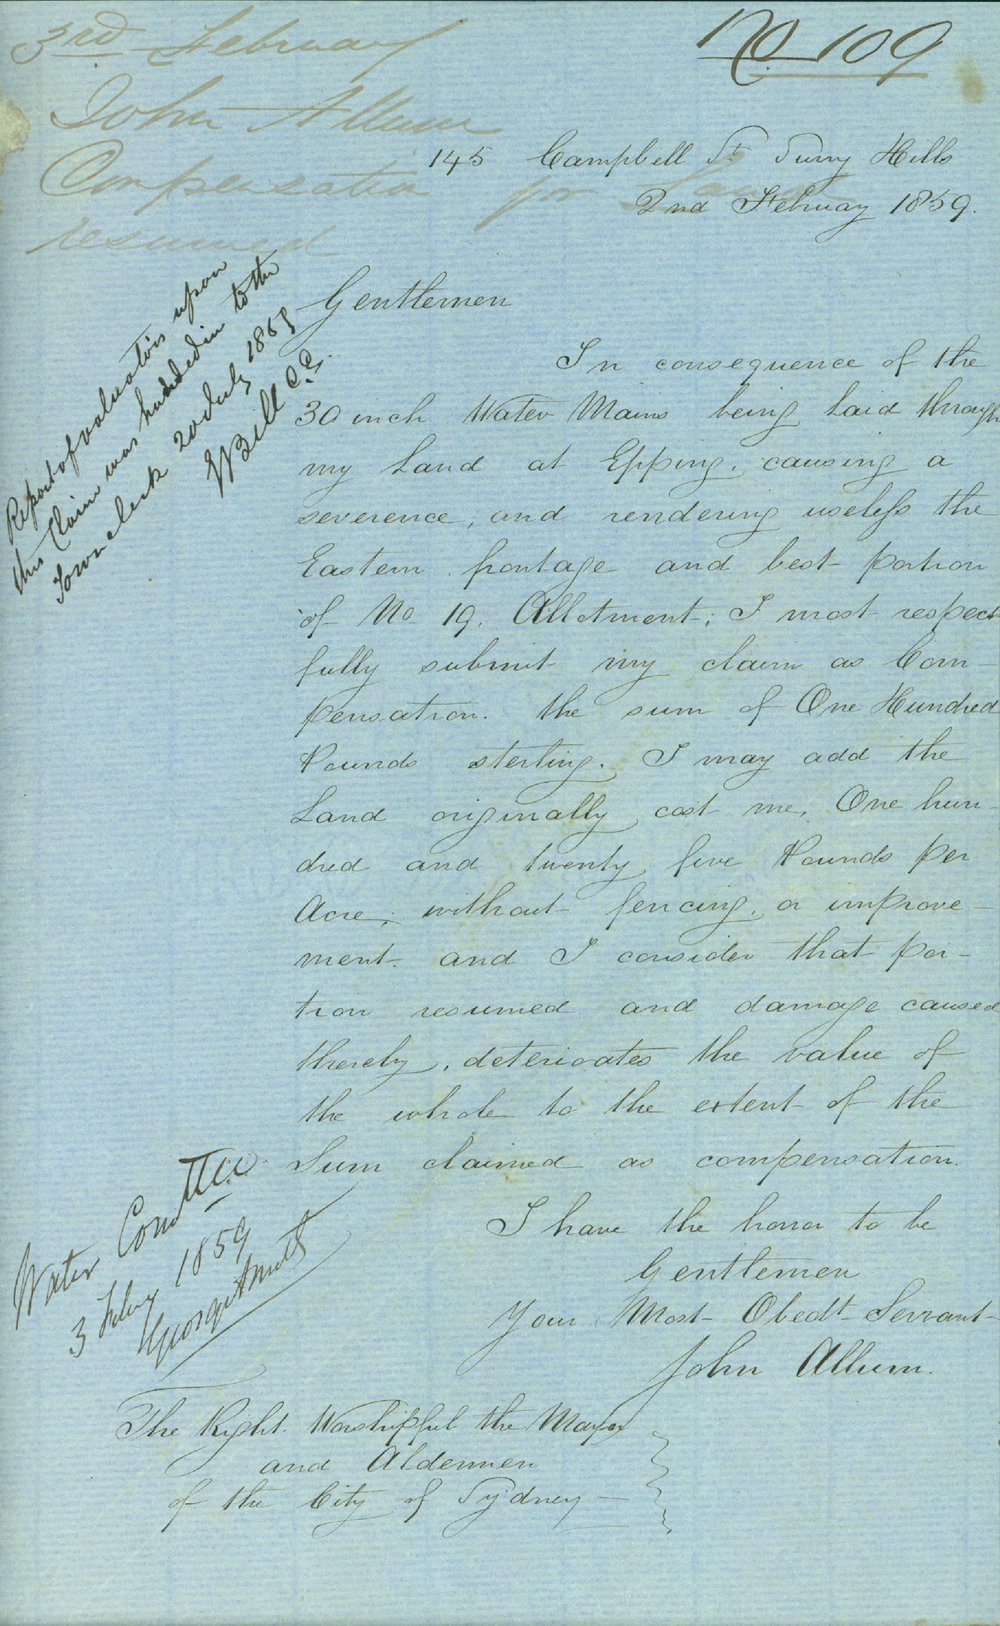 No 109
3rd February
John Allum
Compensation for Land
resumed
145 Campbell St Surry Hills
2nd Februay 1859.
Gentlemen
In consequence of the
30 inch Water Mains being laid through
my Land at Epping, causing a
severence, and rendering useless the
Eastern frontage and best portion
of No 19. Allotment; I most respect
fully submit my claim as Com-
pensation. the sum of One Hundred
Pounds sterling. I may add the
Land originally cost me, One hun-
dred and twenty five Pounds per
Acre; without fencing, or improve-
ment. and I consider that por-
tion resumed and damage caused
thereby, deteriorates the value of
the whole to the extent of the
Sum claimed as compensation.
I have the honor to be
Gentlemen
Your Most Obedt Servant
John Allum.
The Right Worshipful the Mayor
and Aldermen
of the City of Sydney
Report of valuators upon
this Claim was handed in to the
Town clerk 20 July 1859
W Bell C.E.
Water Committee
3 Feby 1859